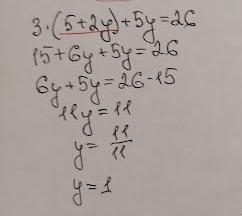 3·(5+2y)+5y=26
15+6y+5y=26
6y+5y=26-15
11y=11
y=11/11
y=1